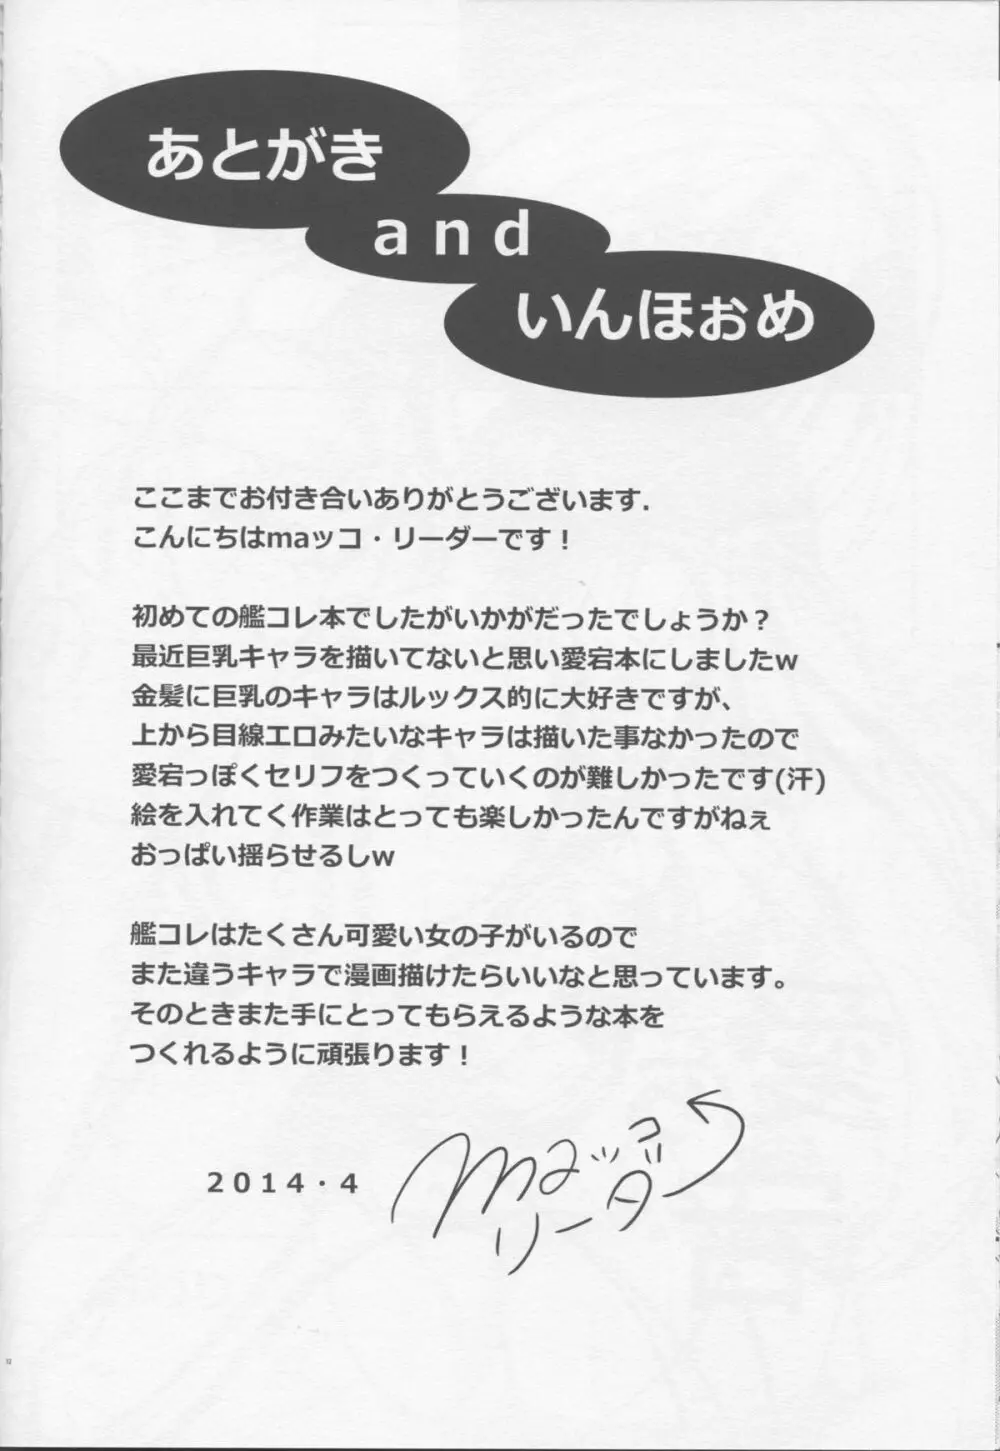 あとがき
and
いんほぉめ
ここまでお付き合いありがとうございます.
こんにちはmaッコ・リーダーです！
初めての艦コレ本でしたがいかがだったでしょうか？
最近巨乳キャラを描いてないと思い愛宕本にしましたw
金髪に巨乳のキャラはルックス的に大好きですが、
上から目線エロみたいなキャラは描いた事なかったので
愛宕っぽくセリフをつくっていくのが難しかったです(汗)
絵を入れてく作業はとっても楽しかったんですがねぇ
おっぱい揺らせるしw
艦コレはたくさん可愛い女の子がいるので
また違うキャラで漫画描けたらいいなと思っています。
そのときまた手にとってもらえるような本を
つくれるように頑張ります！
2014・4
maッコ
リーダー